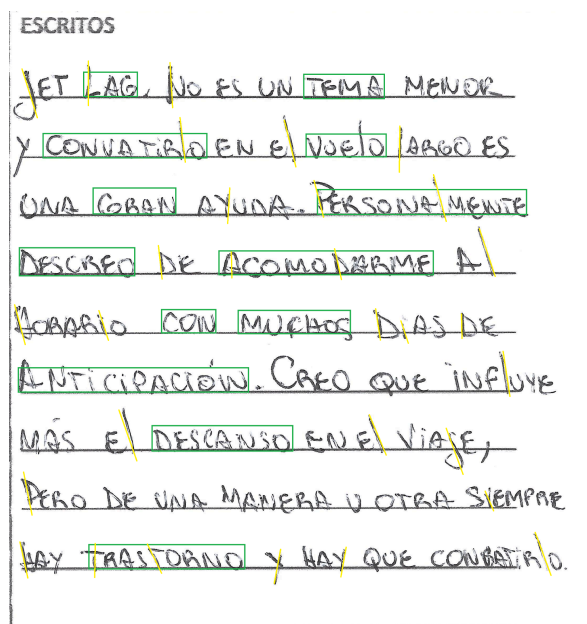 ESCRITOS
JET LAG. NO ES UN TEMA MENOR
Y CONVATIRlO EN El VUElO lARGO ES
UNA GRAN AYUDA. PERSONAlMENTE
DESCREO DE ACOMODARME Al
HORARIO CON MUCHOS DiAS DE
ANTiCiPACIÓN. CREO QUE iNFlUYE
MÁS El DESCANSO EN El ViAJE,
PERO DE UNA MANERA U OTRA SIEMPRE
HAY TRASTORNO Y HAY QUE CONBATIRlO.